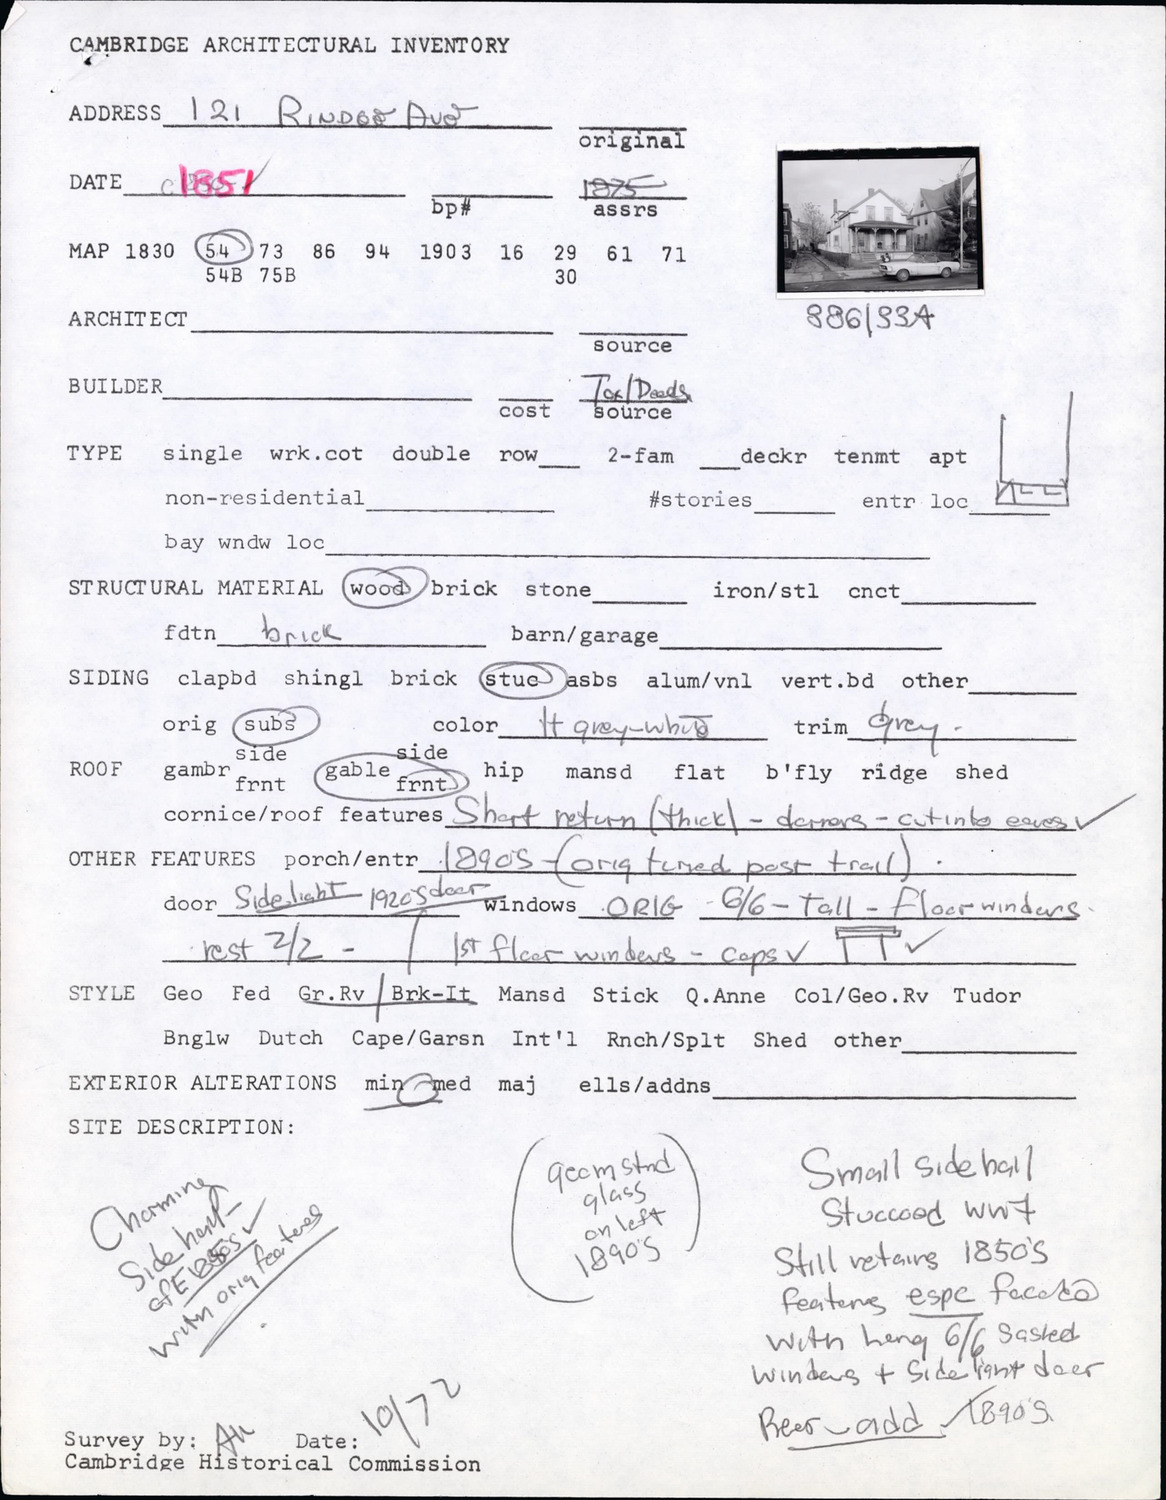 CAMBRIDGE ARCHITECTURAL INVENTORY
ADDRESS 121 RINDGE AVE
original
DATE c 1851 ✓ 1875
bp# assrs
MAP 1830 54 73 86 94 1903 16 29 61 71
54B 75B 30
886/33A
ARCHITECT
source
BUILDER Tax/Deeds
cost source
TYPE single wrk.cot double row 2-fam deckr tenmt apt
non-residential #stories entr loc
bay wndw loc
STRUCTURAL MATERIAL wood brick stone iron/stl cnct
fdtn brick barn/garage
SIDING clapbd shingl brick stuc asbs alum/vnl vert.bd other
orig subs color lt grey-white trim Grey -
side side
ROOF gambr gable hip mansd flat b'fly ridge shed
frnt frnt
cornice/roof features Short return (thick) - dormers - cut into eaves ✓
OTHER FEATURES porch/entr 1890'S - (orig turned post + rail)
door Sidelight 1920'S door windows ORIG 6/6 - Tall - Floor windows
rest 2/2 - 1st floor windows - caps ✓ ✓
STYLE Geo Fed Gr.Rv Brk-It Mansd Stick Q.Anne Col/Geo.Rv Tudor
Bnglw Dutch Cape/Garsn Int'l Rnch/Splt Shed other
EXTERIOR ALTERATIONS min med maj ells/addns
SITE DESCRIPTION:
Charming
Side hall -
of E 1850'S ✓
with orig features
(geom stnd
glass
on left
1890'S)
Small side hall
Stuccoed
Still retains 1850'S
features espc facade
with long 6/6 Sashed
windows + Side light door
Rear add ✓ 1890'S.
Survey by: Date: 10/72
Cambridge Historical Commission